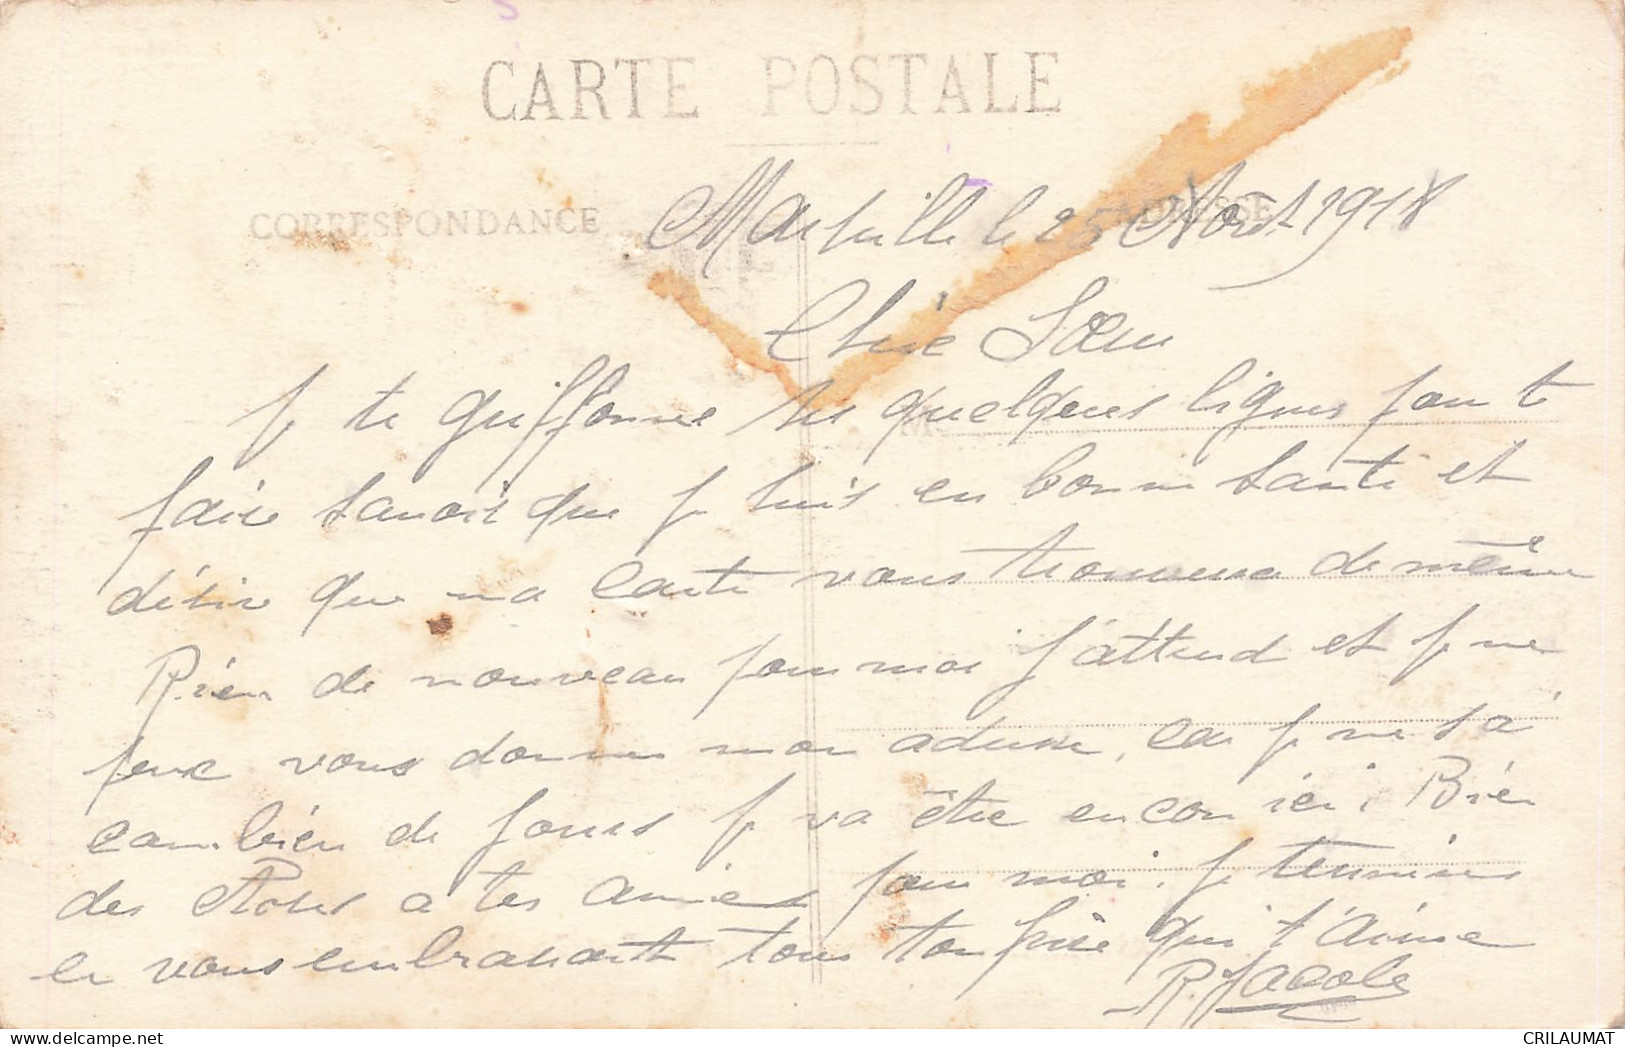 CARTE POSTALE
CORRESPONDANCE
ADRESSE
Marseille le 25 Août 1918
Chère Sœur
Je te griffonne ses quelques lignes pour te
faire savoir que je suis en bonne santé et
désire que ma carte vous trouvera de même
Rien de nouveau pour moi j'attend et je ne
peux vous donner mon adresse, car je ne sai
combien de jours je va être encor ici. Bien
des choses a tes amies pour moi. Je termine
en vous embrassant tous ton frère qui t'aime
R. Jacob
CRILAUMAT